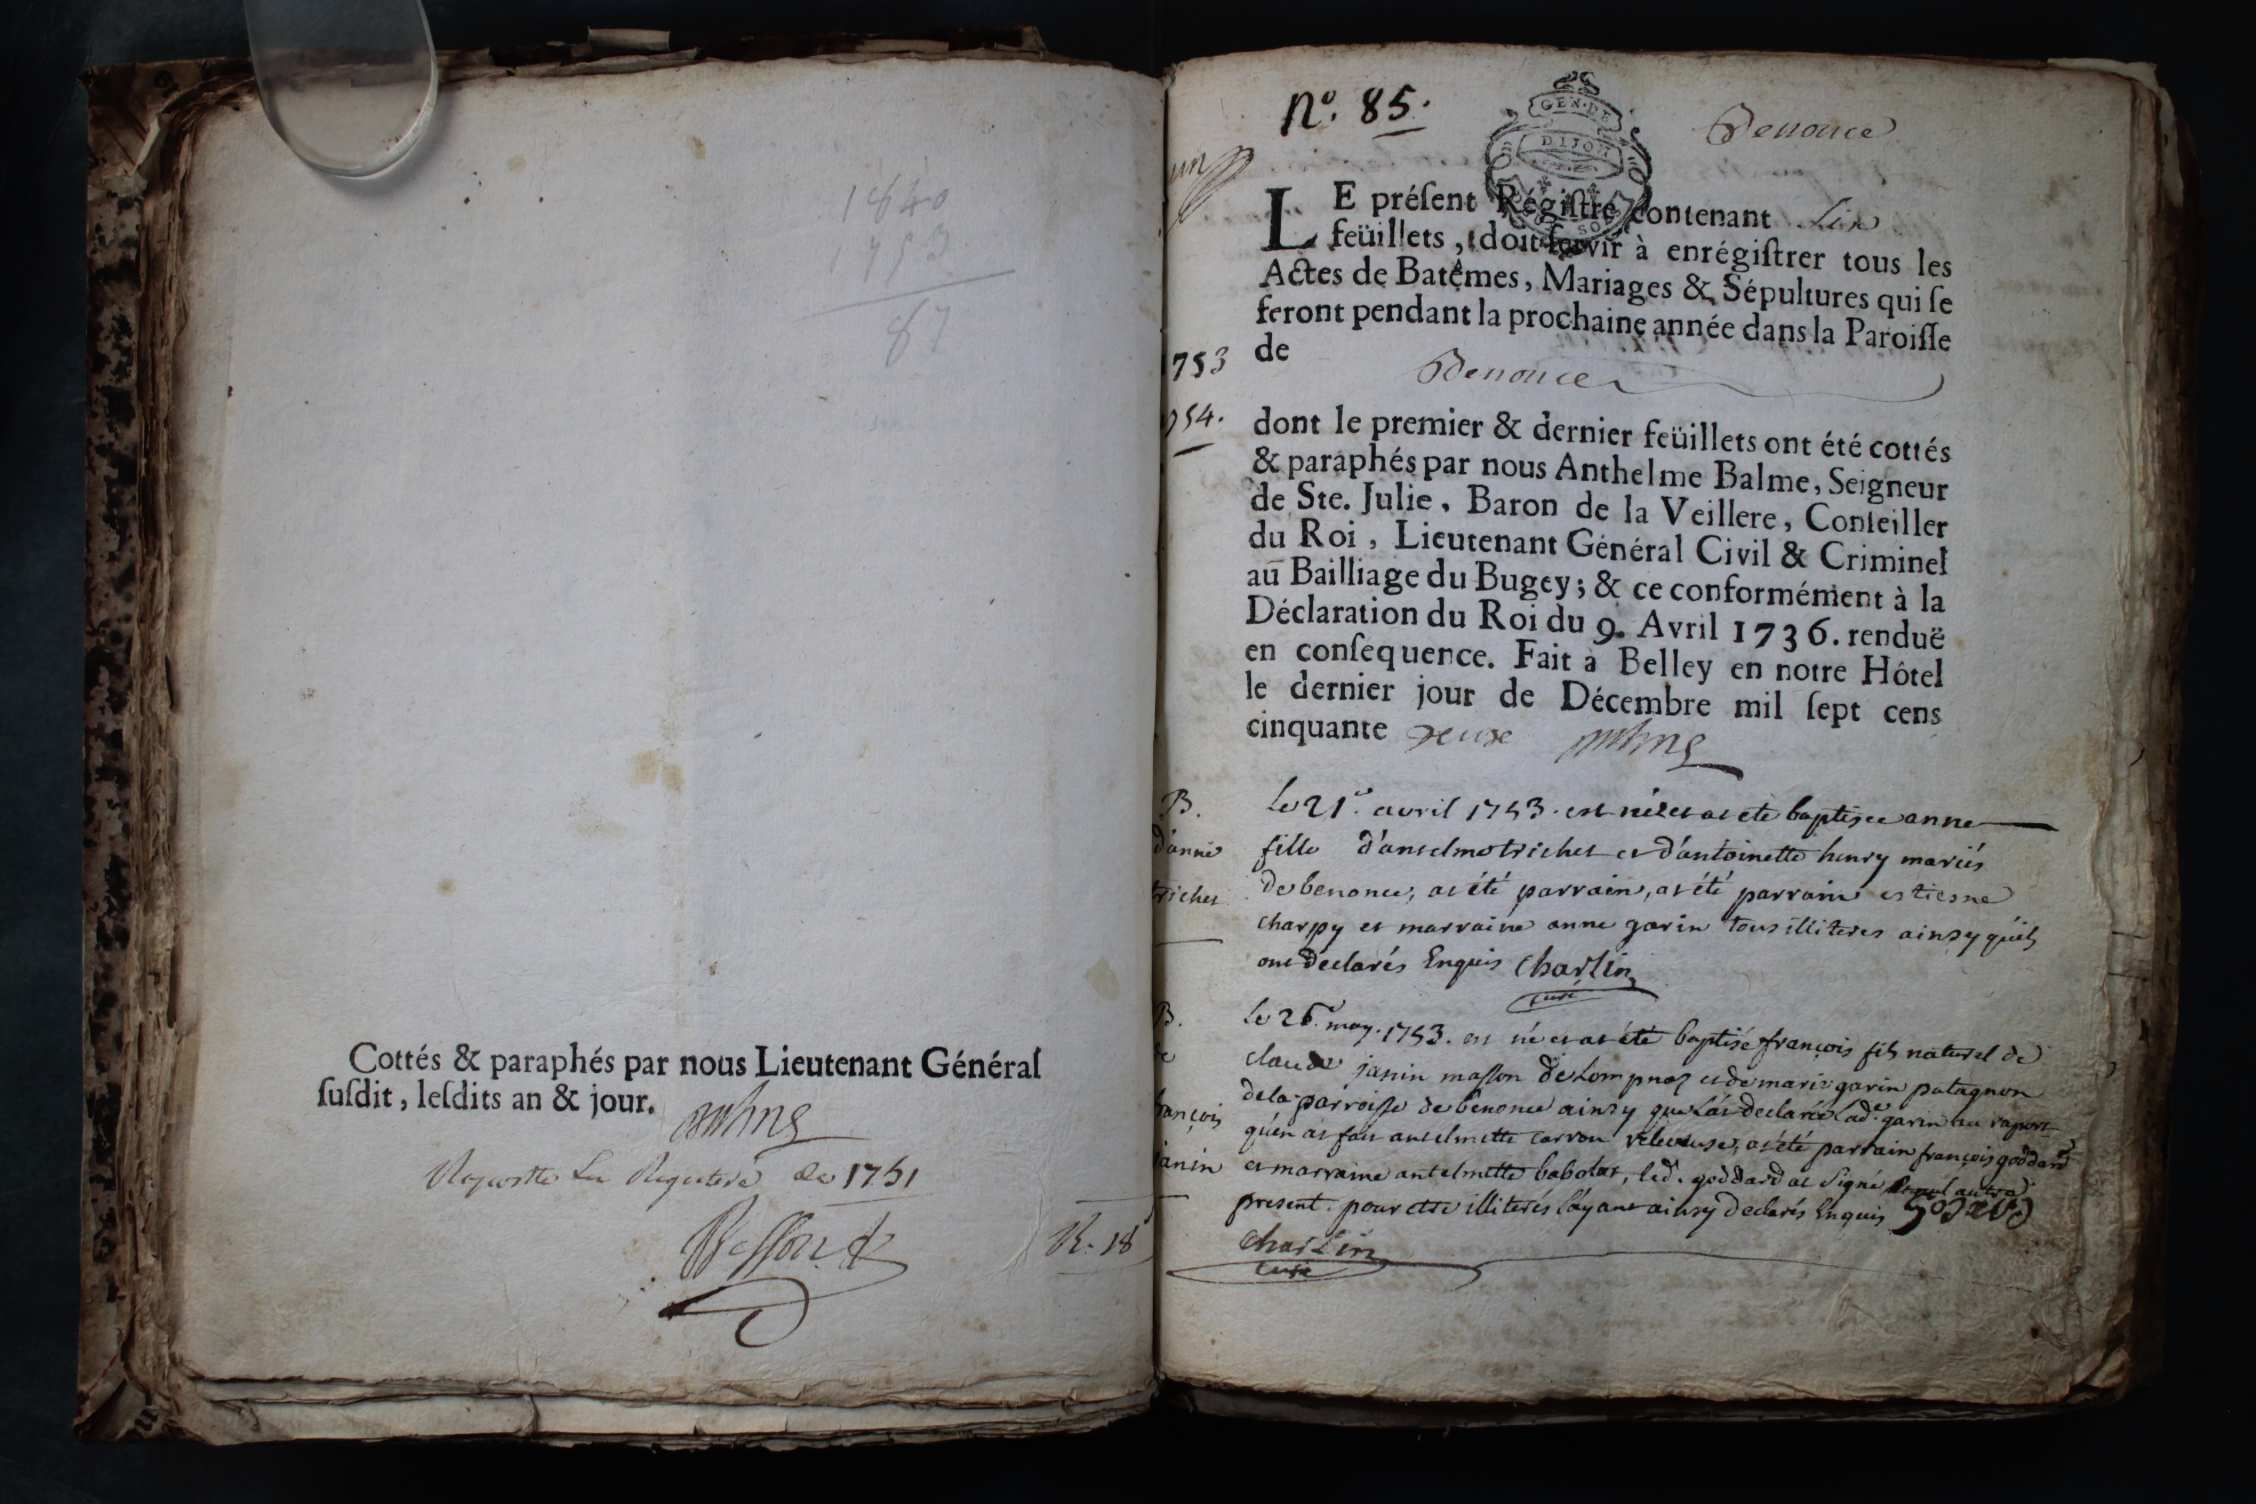 1840
1753
87
Cottés & paraphés par nous Lieutenant Général
ſuſdit, leſdits an & jour.
de 1751
R. 18
N.º 85.
GEN. DE
DIJON
Benonce
LE préſent Régiſtre contenant Six
feüillets, doit ſervir à enrégiſtrer tous les
Actes de Batêmes, Mariages & Sépultures qui ſe
feront pendant la prochaine année dans la Paroiſſe
de
Benonce
1753
1754.
dont le premier & dernier feüillets ont été cottés
& paraphés par nous Anthelme Balme, Seigneur
de Ste. Julie, Baron de la Veillere, Conſeiller
du Roi, Lieutenant Général Civil & Criminel
au Bailliage du Bugey; & ce conformément à la
Déclaration du Roi du 9. Avril 1736. renduë
en conſequence. Fait à Belley en notre Hôtel
le dernier jour de Décembre mil ſept cens
cinquante deux
B.
d'anne
trichet
Le 21.e avril 1753. est née et at eté baptisée anne
fille d'anselmo trichet et d'antoinette henry mariés
de benonce, at été parrain, at été parrain estienne
charpy et marraine anne garin tous illiteres ainsy qu'ils
ont déclarés Enquis Charlin
curé
B.
de
françois
janin
Le 26.e may. 1753. est né et at été baptisé françois fils naturel de
claude janin masson de Lompnaz et de marie garin patagnon
de la parroisse de benonce ainsy que l'at declarée lad.e garin au raport
qu'en at fait antelmette carron releveuse, at été parrain françois goddard
et marraine antelmette babolat, led. goddard at signé autre
present. pour etre illiterés l'ayant ainsy declarés Enquis godard
Charlin
curé